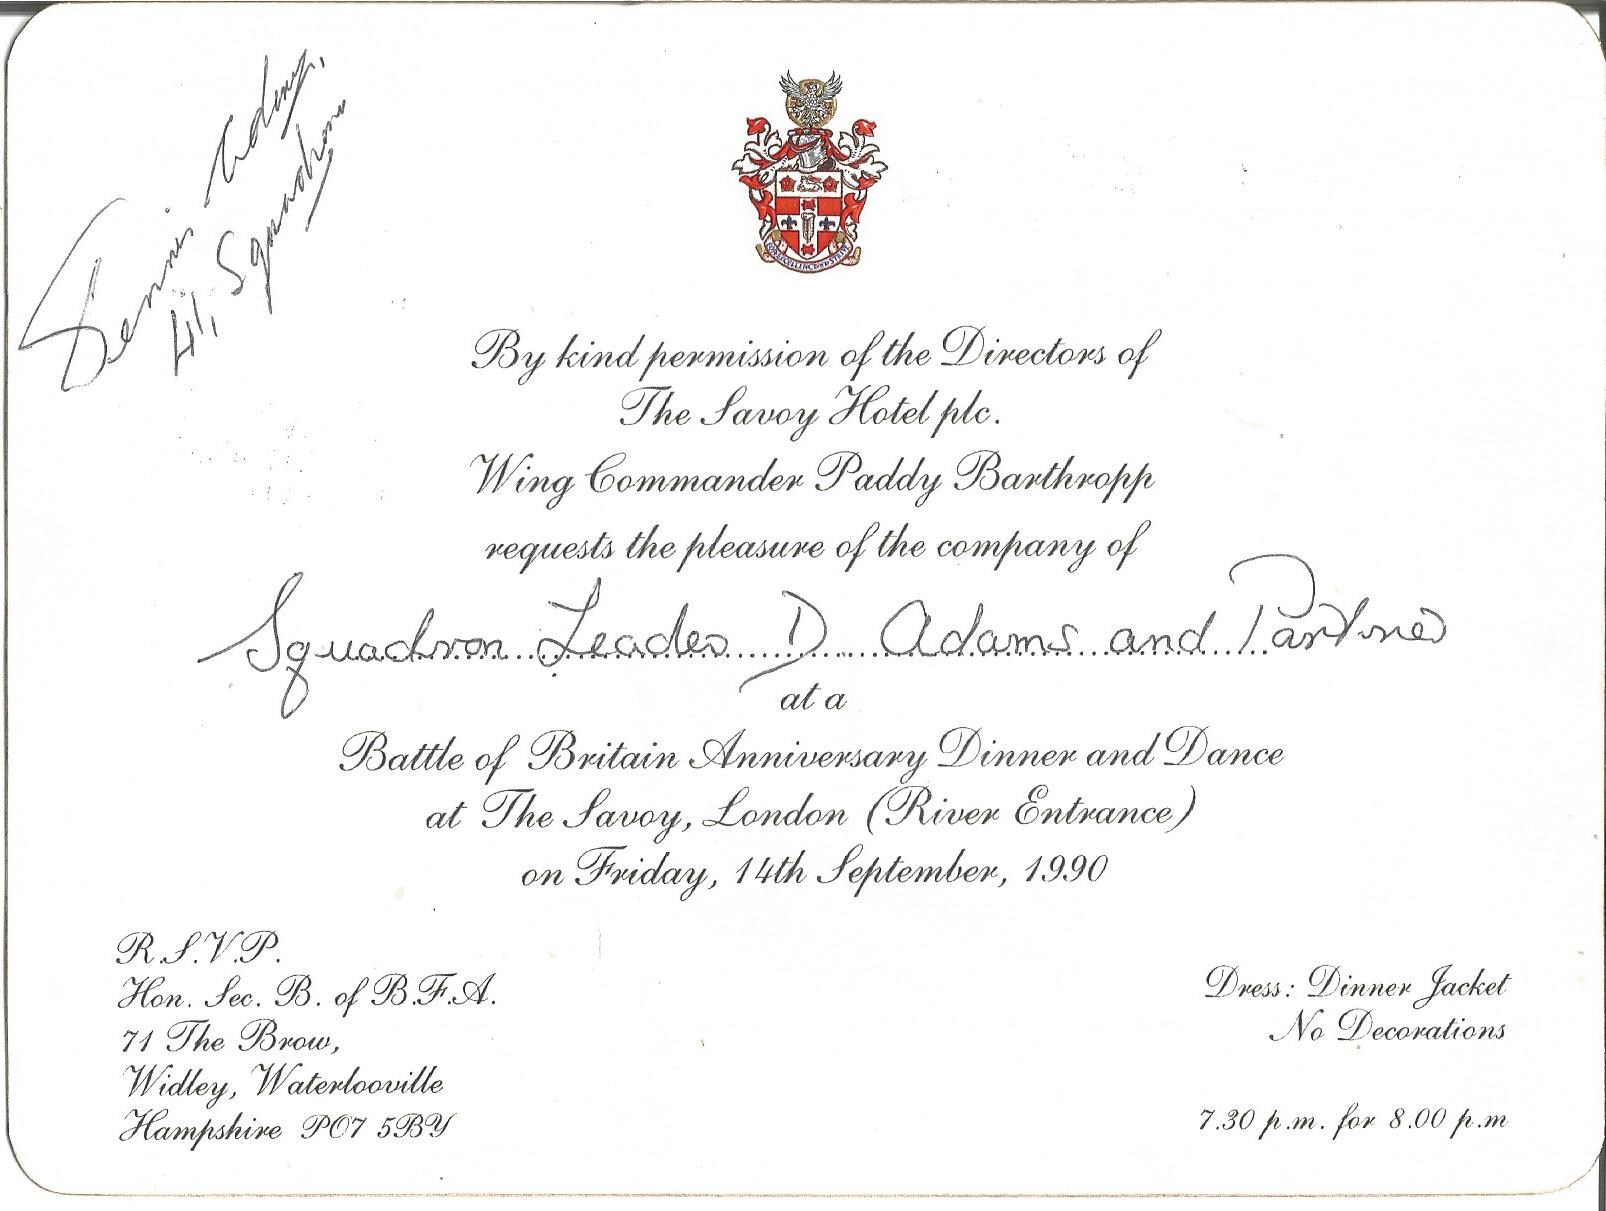 Dennis Adams,
41, Squadron
By kind permission of the Directors of
The Savoy Hotel plc.
Wing Commander Paddy Barthropp
requests the pleasure of the company of
Squadron Leader D Adams and Partner
at a
Battle of Britain Anniversary Dinner and Dance
at The Savoy, London (River Entrance)
on Friday, 14th September, 1990
R.S.V.P.
Hon. Sec. B. of B.F.A.
71 The Brow,
Widley, Waterlooville
Hampshire PO7 5BY
Dress: Dinner Jacket
No Decorations
7.30 p.m. for 8.00 p.m